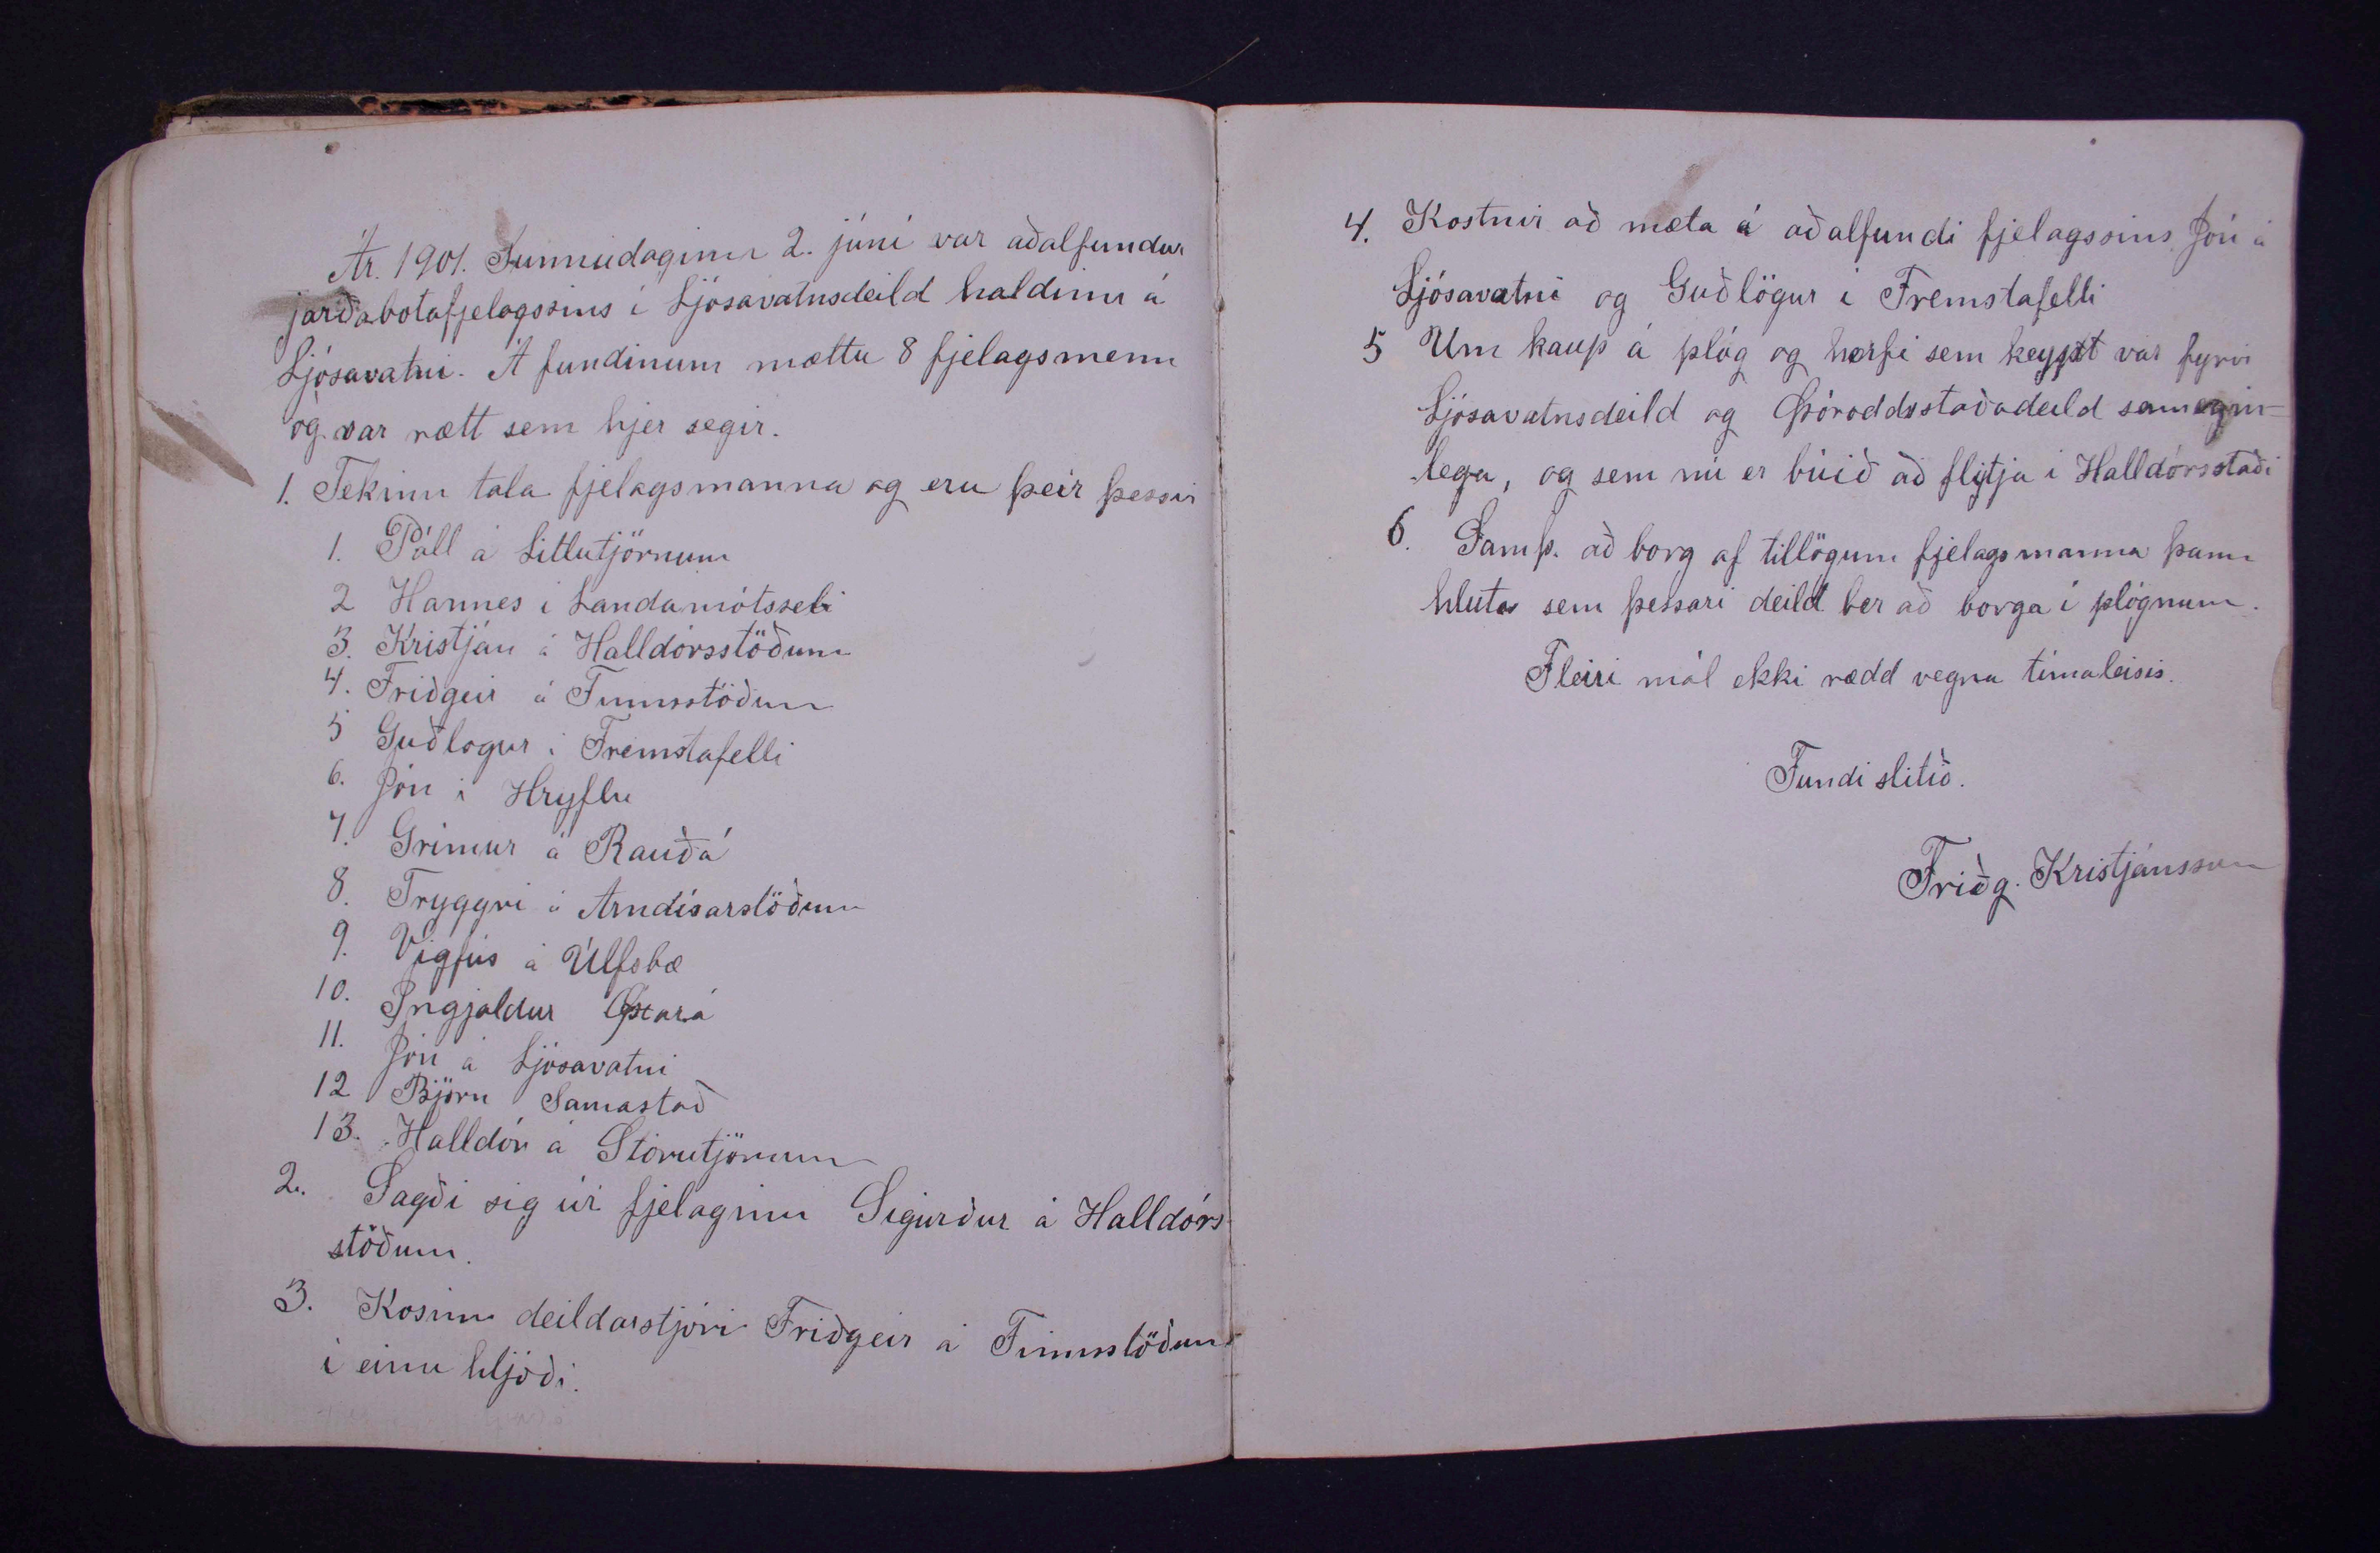 Ár. 1901. Sunnudaginn 2. júní var aðalfundur
jarðabotafjelagssins í Ljósavatnsdeild haldinn á
Ljósavatni. Á fundinum mættu 8 fjelagsmenn
og var rætt sem hjer segir.
1. Tekinn tala fjelagsmanna og eru þeir þessir
1. Páll á Litlutjörnum
2 Hannes í Landamótsseli
3. Kristján á Halldórsstöðum
4. Friðgeir á Finnsstöðum
5 Guðlogur í Fremstafelli
6. Jón í Hryflu
7. Grímur á Rauðá
8. Tryggvi á Arndísarstöðum
9. Vigfús á Úlfsbæ
10. Ingjaldur Öxará
11. Jón á Ljósavatni
12 Björn Samastað
13. Halldór á Stórutjörnum
2. Sagði sig úr fjelaginu Sigurður á Halldórs-
stöðum.
3. Kosinn deildarstjóri Friðgeir á Finnsstöðum
í einu hljóði.
4. Kostnir að mæta á aðalfundi fjelagssins Jón á
Ljósavatni og Guðlögur í Fremstafelli
5 Um kaup á plóg og herfi sem keypt var fyrir
Ljósavatnsdeild og Þóroddsstaðadeild samegin-
lega, og sem nú er búið að flytja í Halldórsstaði
6. Samþ. að borg af tillögum fjelagsmanna þann
hluta sem þessari deild ber að borga í plógnum.
Fleiri mál ekki rædd vegna tímaleisis.
Fundi slitið.
Friðg. Kristjánsson